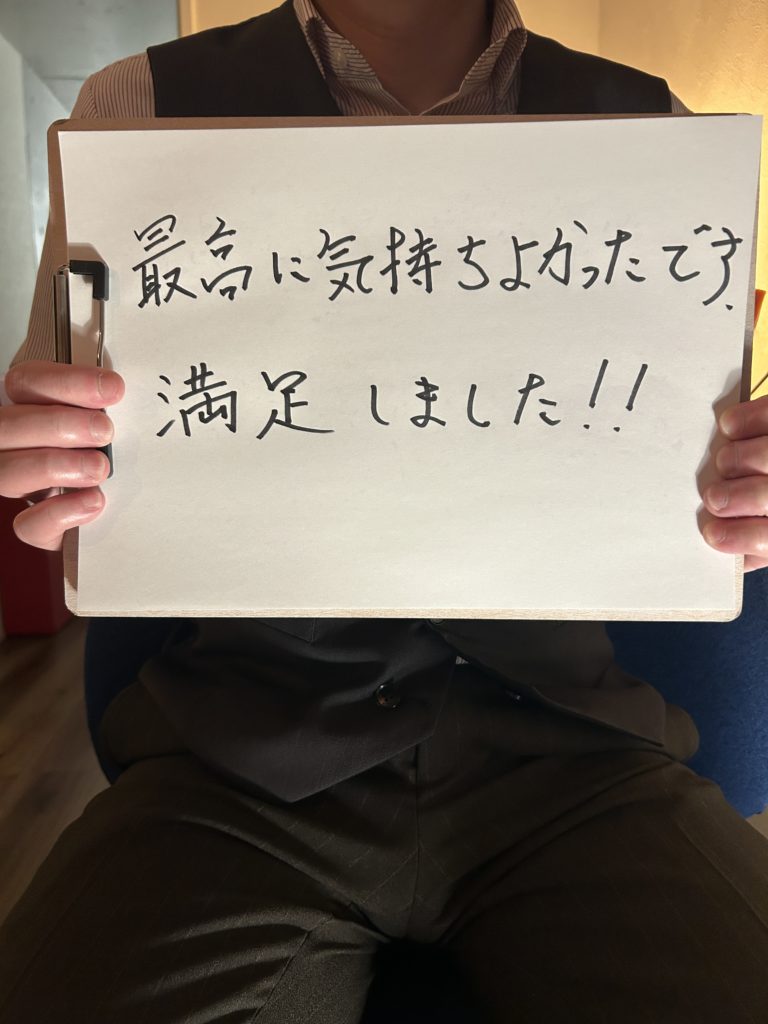 最高に気持ちよかったです.
満足しました!!